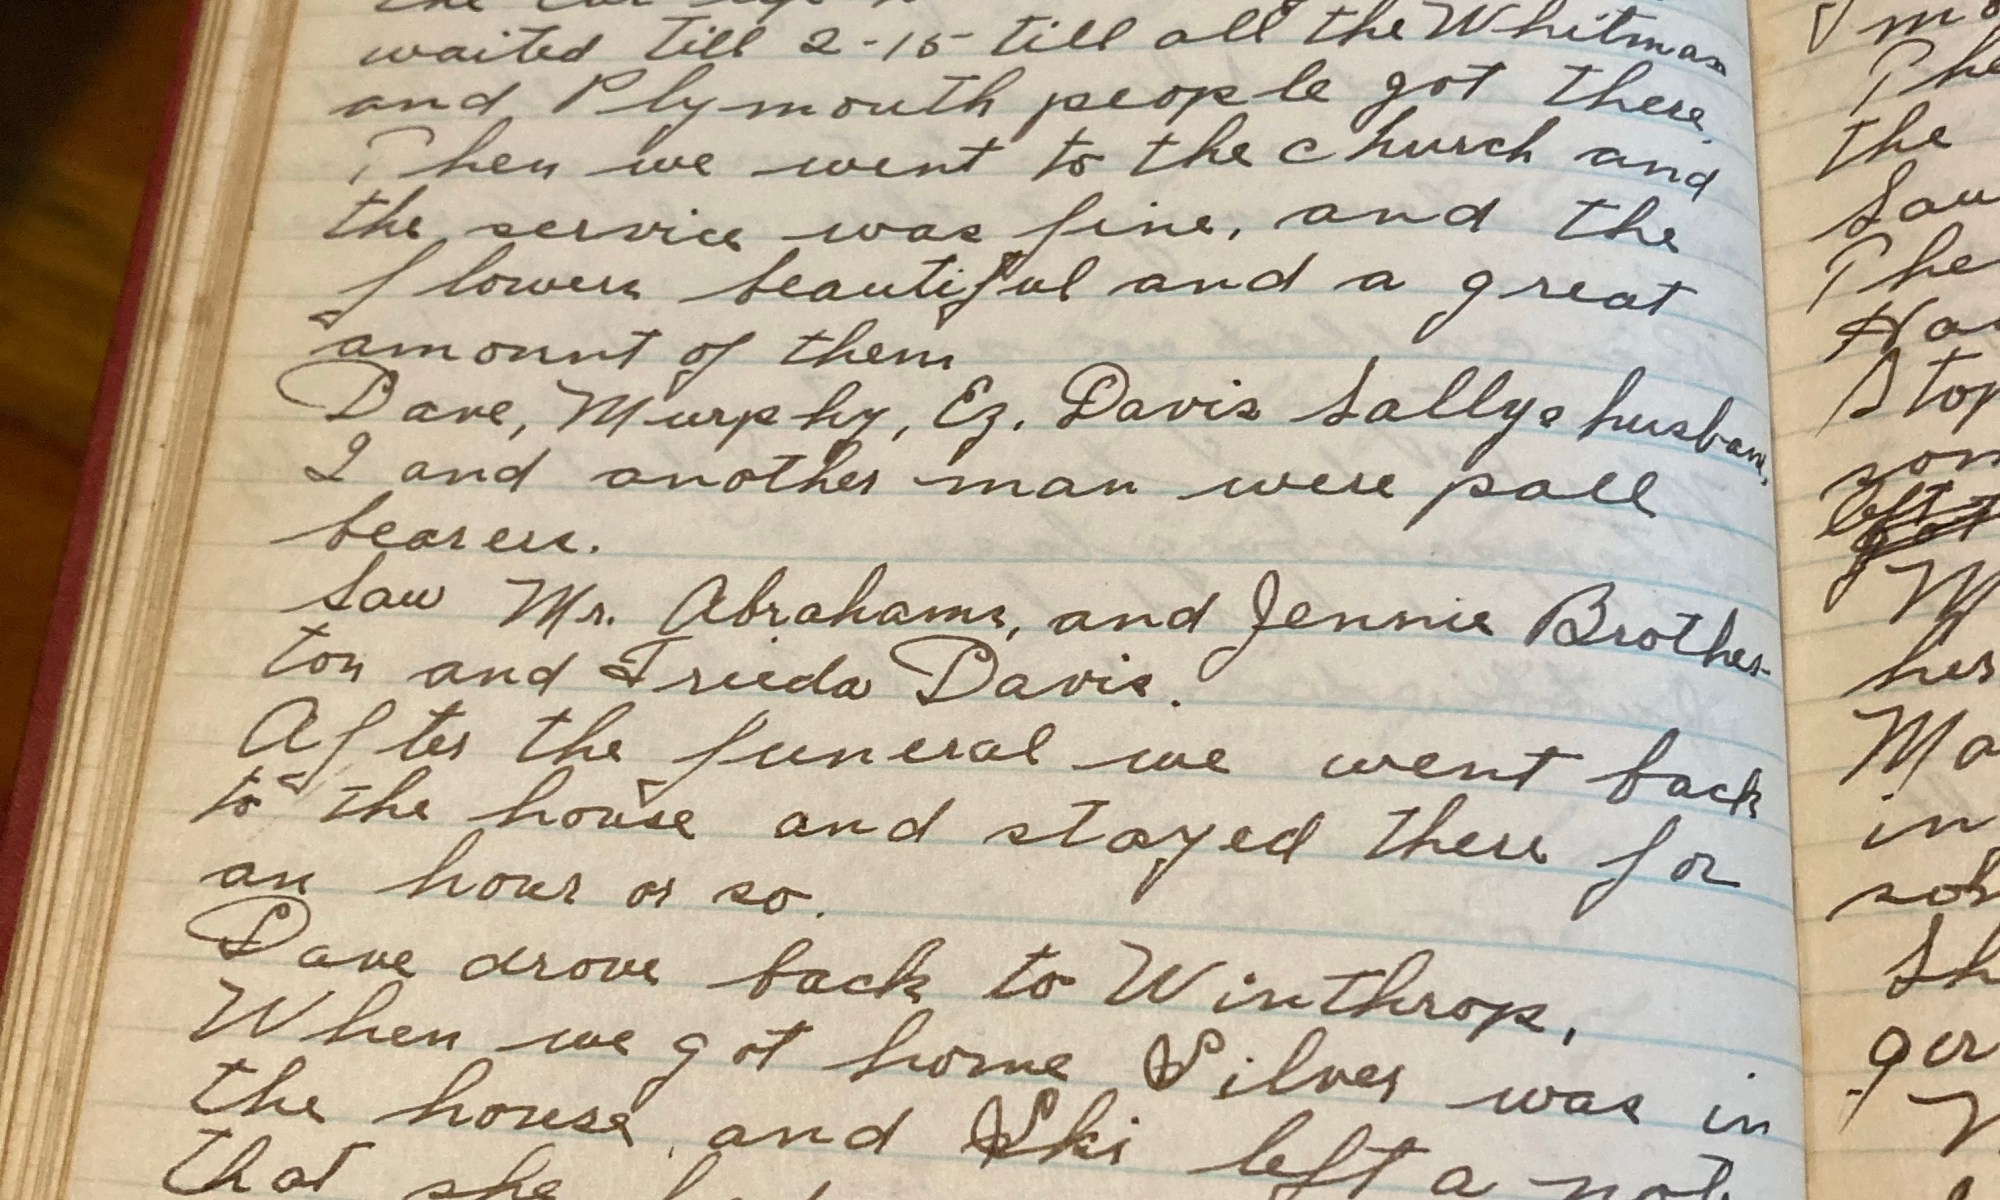 waited till 2-15 till all the Whitman
and Plymouth people got there.
Then we went to the church and
the service was fine, and the
flowers beautiful and a great
amount of them
Dave, Murphy, Ez. Davis Sallys husband,
I and another man were pall
bearers.
Saw Mr. Abrahams, and Jennie Brother-
ton and Frieda Davis.
After the funeral we went back
to the house and stayed there for
an hour or so.
Dave drove back to Winthrop,
When we got home Silver was in
the house, and Ski left a not
that she
the
Sau
The
Ha
Stop
left
M
her
Ma
in
Sh
ger